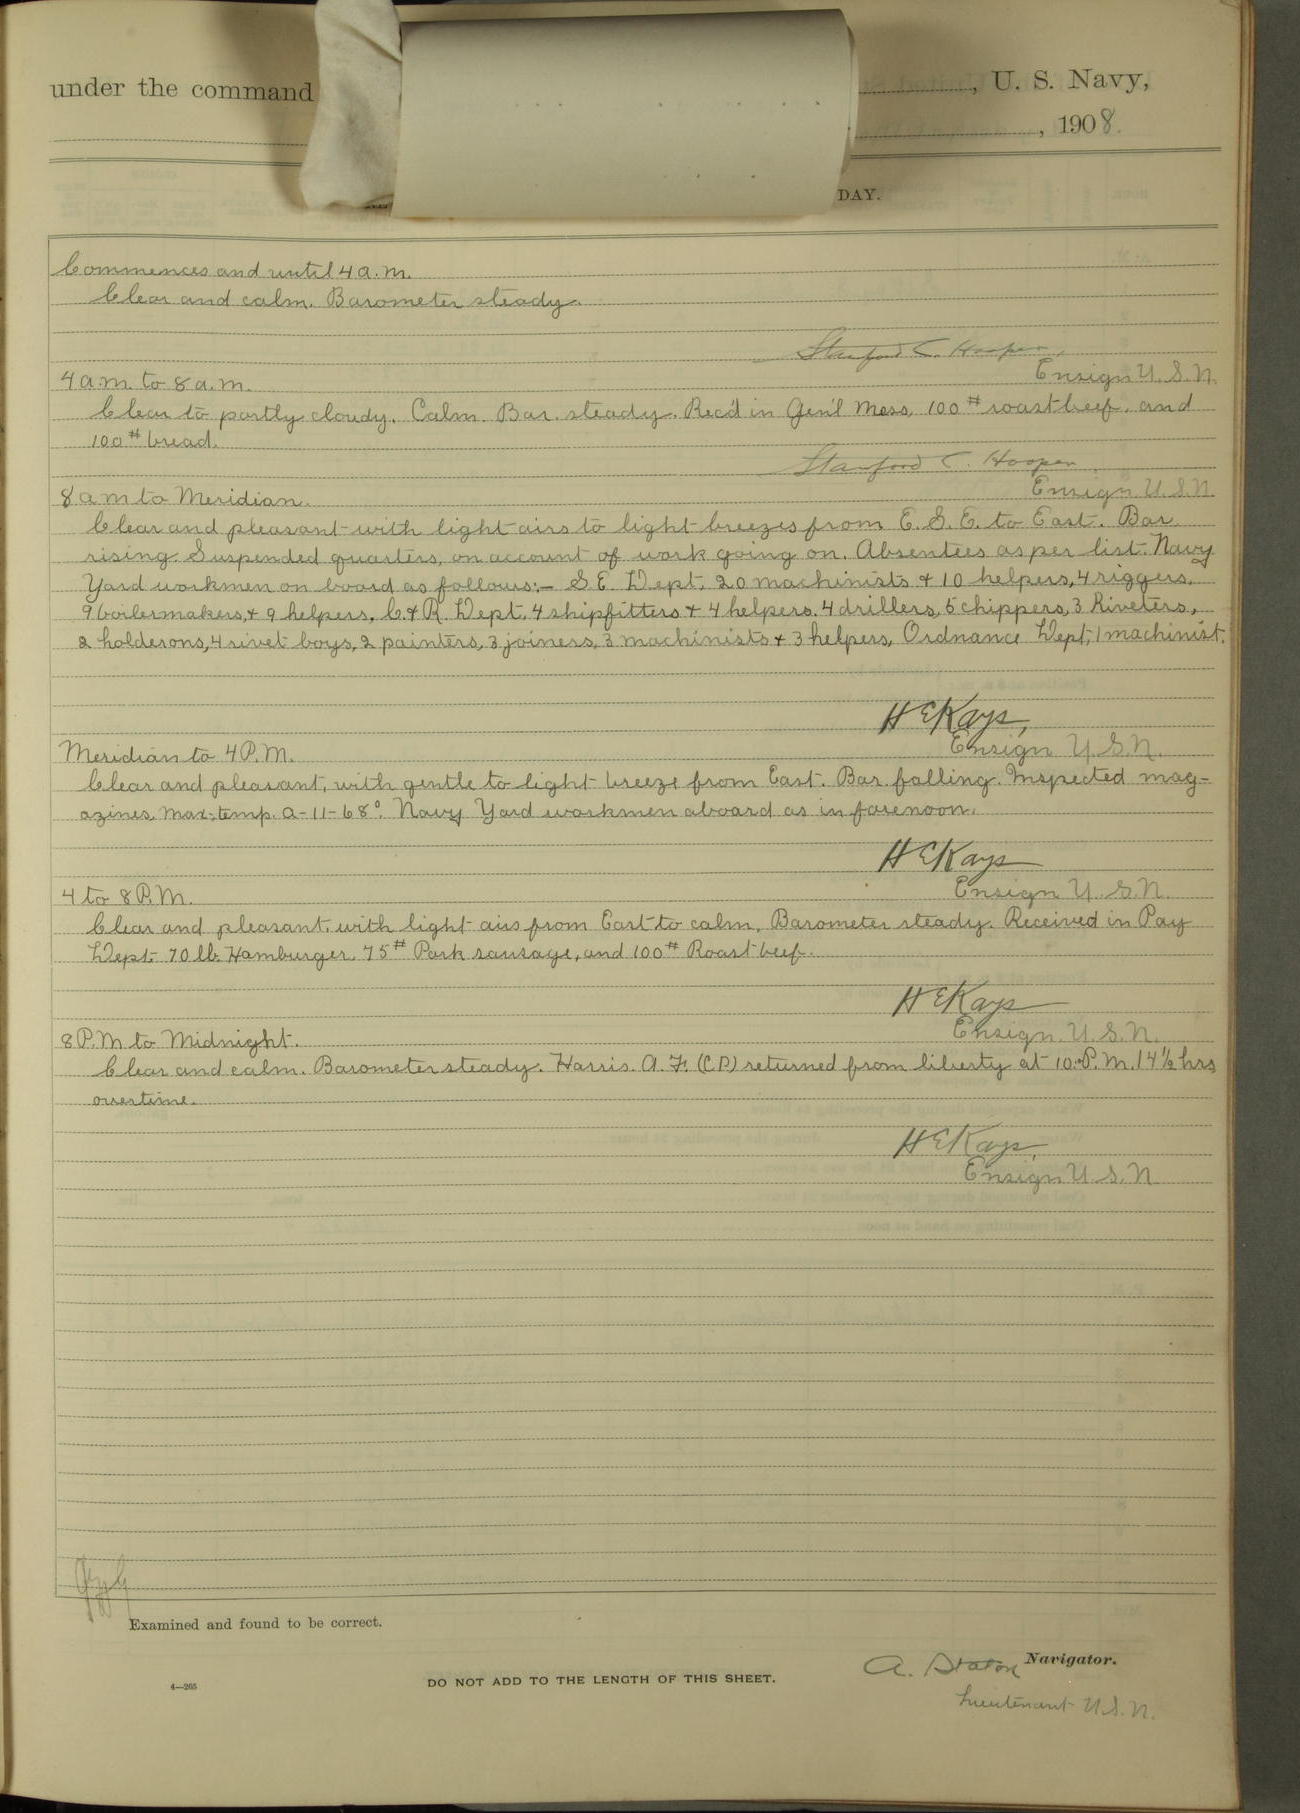 under the command , U. S. Navy,
, 1908.
DAY.
Commences and until 4 a.m.
Clear and calm. Barometer steady.
Stanford C. Hooper,
Ensign U.S.N.
4 a.m. to 8 a.m.
Clear to partly cloudy. Calm. Bar. steady. Rec'd in Gen'l Mess, 100# roast beef. and
100# bread.
Stanford C. Hooper.
Ensign U.S.N.
8 a m to Meridian.
Clear and pleasant with light airs to light breezes from E. S. E. to East. Bar
rising. Suspended quarters, on account of work going on. Absentees as per list. Navy
Yard workmen on board as follows:— S.E. Dept, 20 machinists & 10 helpers, 4 riggers,
9 boilermakers, & 9 helpers, C. & R. Dept. 4 shipfitters & 4 helpers. 4 drillers, 5 chippers, 3 Riveters,
2 holderons, 4 rivet boys, 2 painters, 3 joiners, 3 machinists & 3 helpers, Ordnance Dept, 1 machinist.
H E Kays,
Ensign U.S.N.
Meridian to 4 P.M.
Clear and pleasant, with gentle to light breeze from East. Bar falling. Inspected mag-
azines. Max-temp. A-11-68°. Navy Yard workmen aboard as in forenoon.
H E Kays
Ensign U.S.N.
4 to 8 P.M.
Clear and pleasant, with light airs from East to calm. Barometer steady. Received in Pay
Dept. 70 lb. Hamburger 75# Pork sausage, and 100# Roast beef.
H E Kays
Ensign U.S.N.
8 P.M to Midnight.
Clear and calm. Barometer steady. Harris. A. F. (C.P.) returned from liberty at 10 P.M. 14 ½ hrs
overtime.
H E Kays,
Ensign U.S.N
Examined and found to be correct.
A. Staton Navigator.
DO NOT ADD TO THE LENGTH OF THIS SHEET.
4—265
Lieutenant U.S.N.